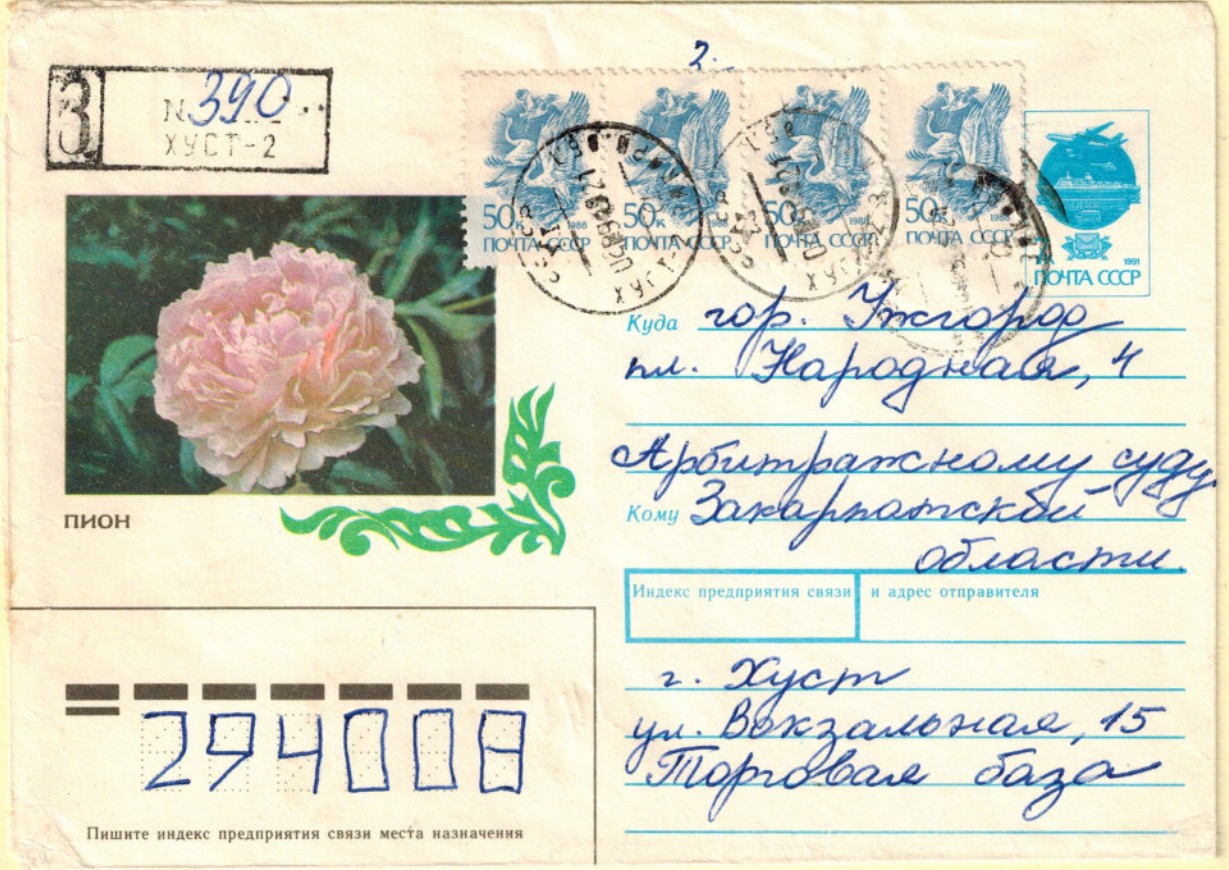 2.
З
№ 390
ХУСТ-2
50к 1988
ПОЧТА СССР
50к 1988
ПОЧТА СССР
50к 1988
ПОЧТА СССР
50к 1988
ПОЧТА СССР
1991
ПОЧТА СССР
Куда гор. Ужгород
пл. Народная, 4
Арбитражному суду
Кому Закарпатской
области.
ПИОН
Индекс предприятия связи
и адрес отправителя
г. Хуст
ул. Вокзальная, 15
Торговая база
294008
Пишите индекс предприятия связи места назначения